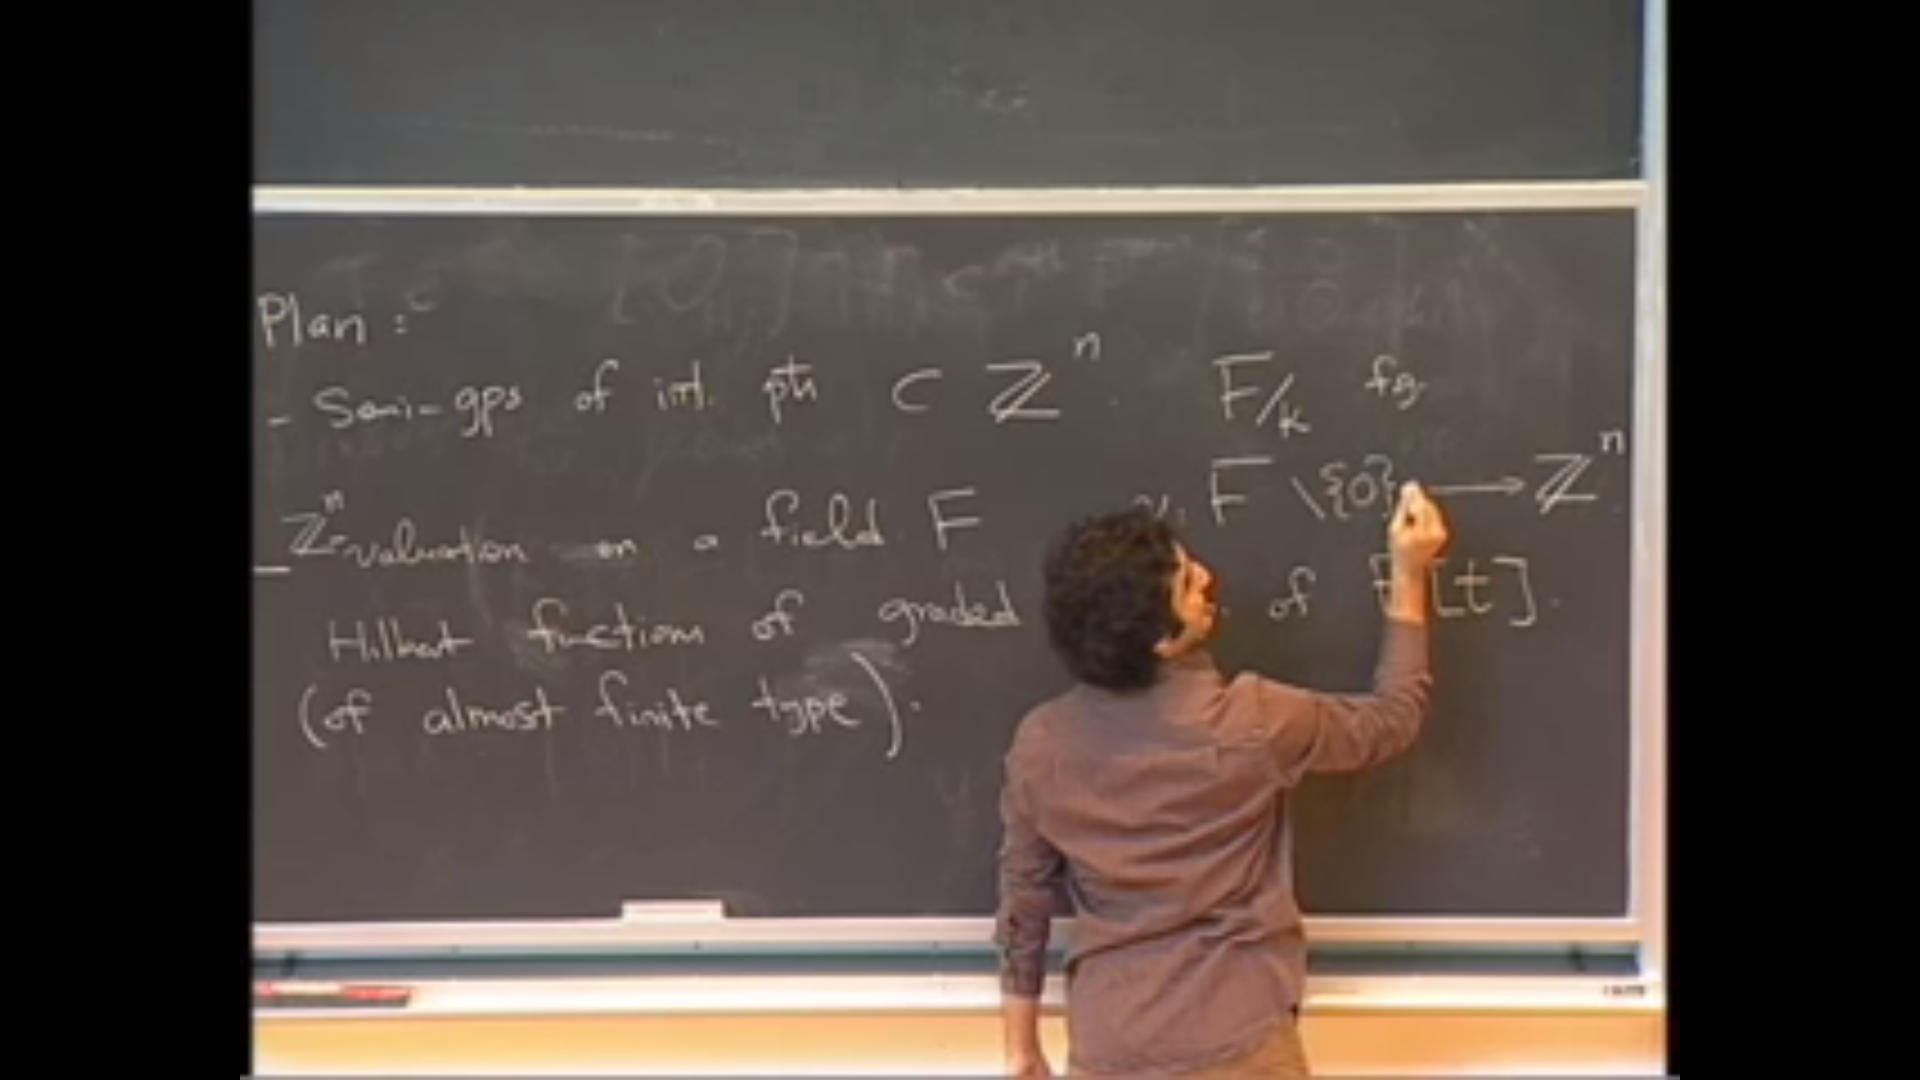 Plan :
- Semi-gps of int. pts ⊂ ℤⁿ. F/k fg
- ℤⁿ-valuation on a field F v: F \ {0} → ℤⁿ
Hilbert functions of graded of F[t].
(of almost finite type).